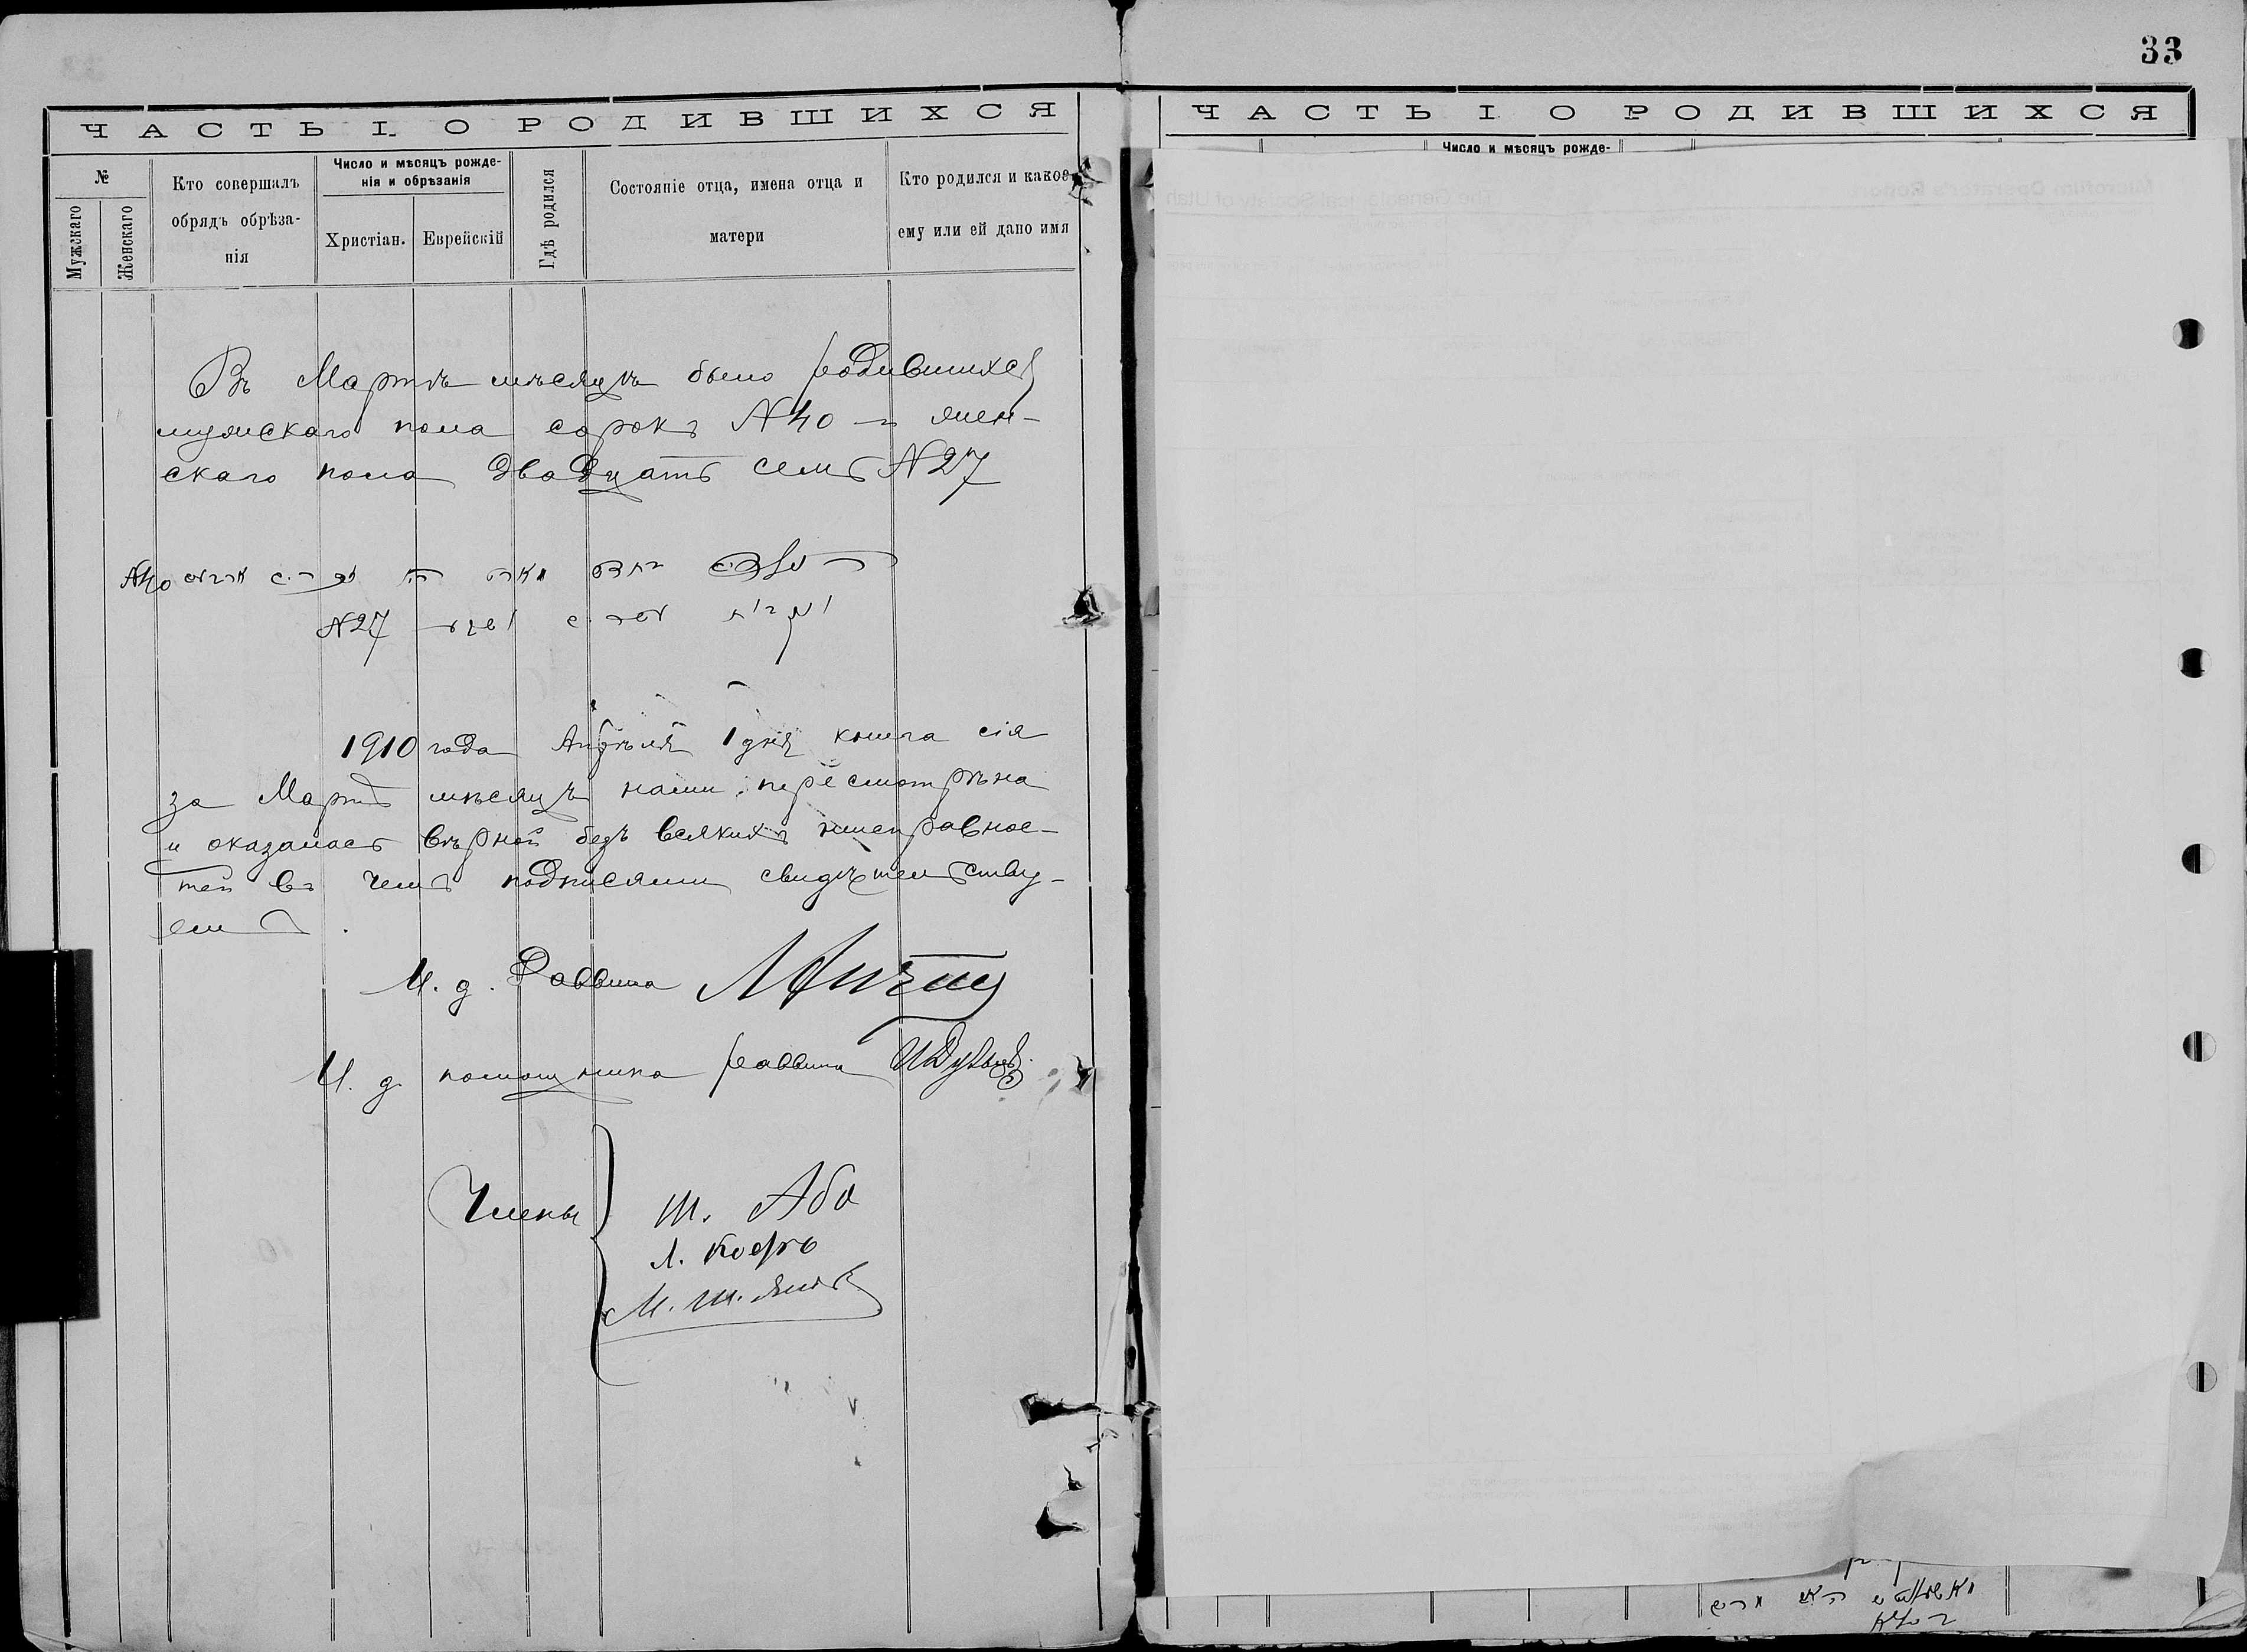 33
ЧАСТЬ I. О РОДИВШИХСЯ
№
Мужскаго
Женскаго
Кто совершалъ
обрядъ обрѣза-
нія
Число и мѣсяцъ рожде-
нія и обрѣзанія
Христіан.
Еврейскій
Гдѣ родился
Состояніе отца, имена отца и
матери
Кто родился и какое
ему или ей дано имя
Въ Мартѣ мѣсяцѣ было родившихся
мужскаго пола сорокъ №40 и жен-
скаго пола двадцать семь №27
№40
№27
1910 года Апрѣля 1 дня книга сія
за Мартъ мѣсяцъ нами пересмотрѣна
и оказалась вѣрной безъ всякихъ неисправнос-
тей въ чемъ подписями свидѣтельству-
емъ.
И. д. Раввина
И. д. помощника раввина
Члены
Ш. Або
Л. Коеръ
М. Ш.
ЧАСТЬ I О РОДИВШИХСЯ
Число и мѣсяцъ рожде-